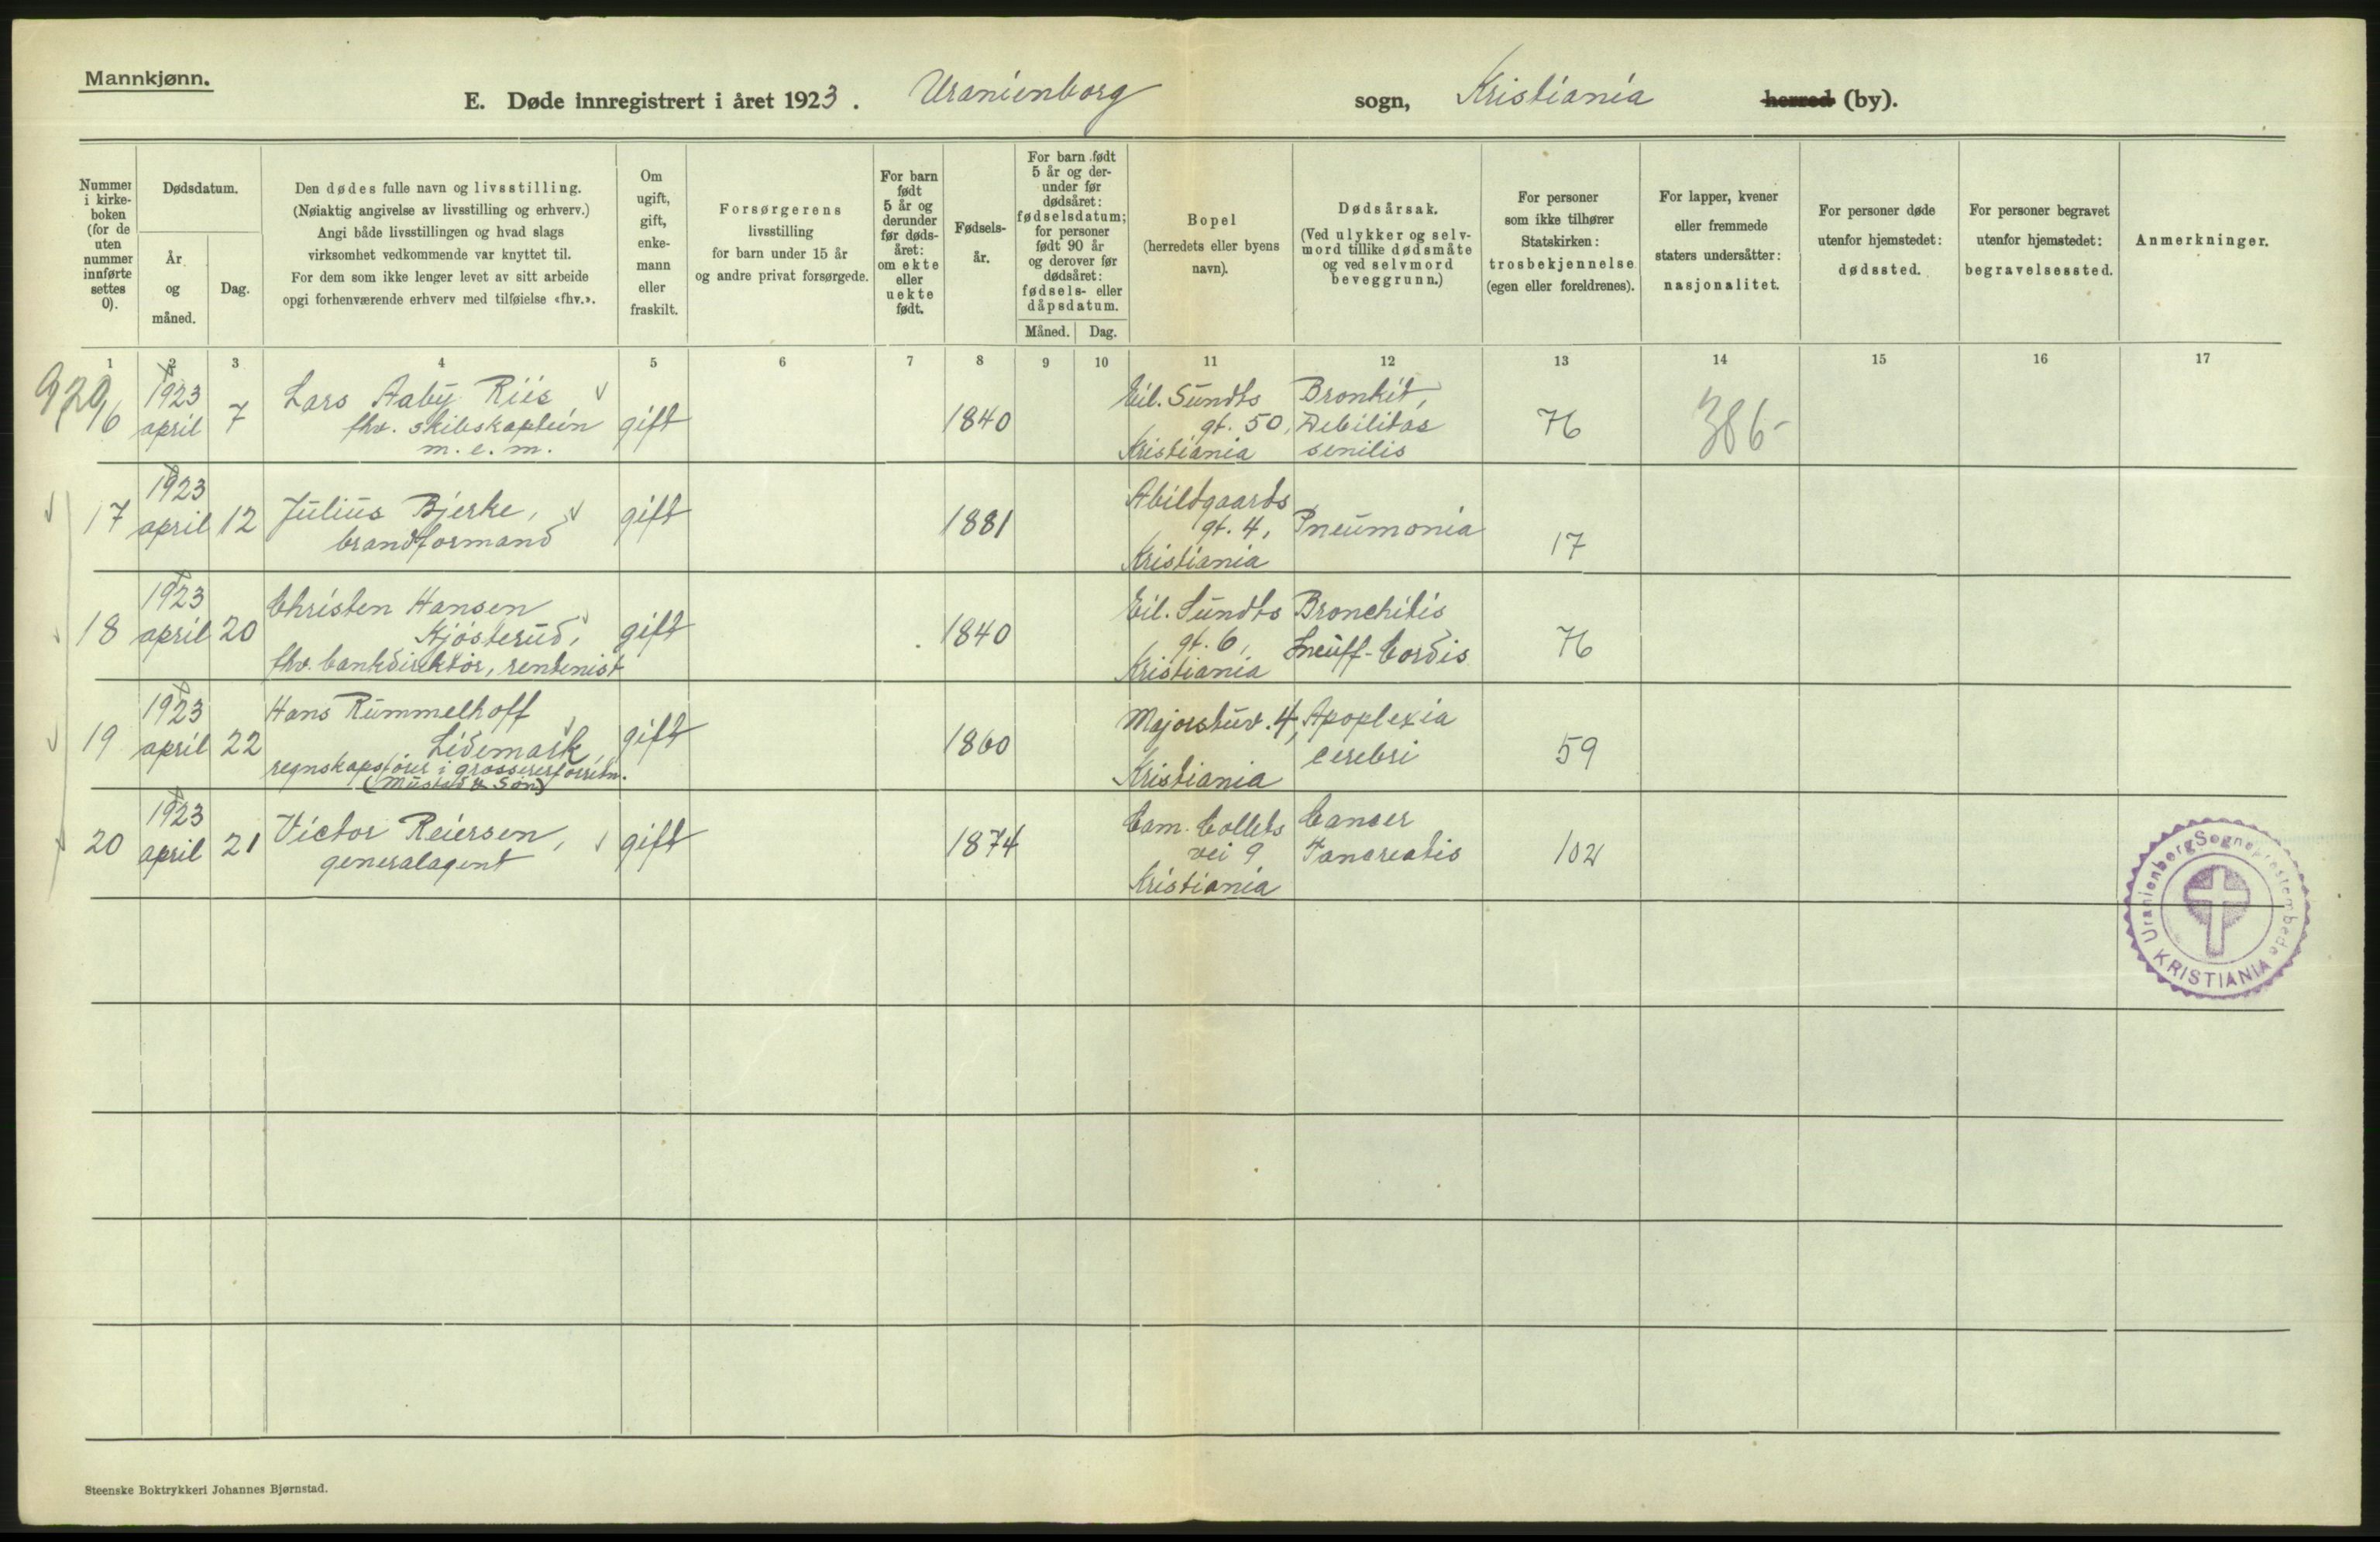 Mannkjønn.
E. Døde innregistrert i året 1923. Uranienborg sogn, Kristiania herred (by).
Nummer i kirke-boken (for de uten nummer innførte settes 0).
Dødsdatum.
År og måned.
Dag.
Den dødes fulle navn og livsstilling.
(Nøiaktig angivelse av livsstilling og erhverv.)
Angi både livsstillingen og hvad slags
virksomhet vedkommende var knyttet til.
For dem som ikke lenger levet av sitt arbeide
opgi forhenværende erhverv med tilføielse «fhv.».
Om ugift, gift, enke-mann eller fraskilt.
Forsørgerens
livsstilling
for barn under 15 år
og andre privat forsørgede.
For barn født 5 år og derunder før døds-året: om ekte eller uekte født.
Fødsels-år.
For barn født 5 år og der-under før dødsåret: fødselsdatum; for personer født 90 år og derover før dødsåret: fødsels- eller dåpsdatum.
Måned. Dag.
Bopel
(herredets eller byens
navn).
Dødsårsak.
(Ved ulykker og selv-
mord tillike dødsmåte
og ved selvmord
beveggrunn.)
For personer
som ikke tilhører
Statskirken:
trosbekjennelse
(egen eller foreldrenes).
For lapper, kvener
eller fremmede
staters undersåtter:
nasjonalitet.
For personer døde
utenfor hjemstedet:
dødssted.
For personer begravet
utenfor hjemstedet:
begravelsessted.
Anmerkninger.
1 2 3 4 5 6 7 8 9 10 11 12 13 14 15 16 17
929
16 1923 april 7 Lars Aaby Riis fhv. skibskaptein m. e. m. gift 1840 Eil. Sundts gt. 50, Kristiania Bronkit, Debilitas senilis 76 386-
17 1923 april 12 Julius Bjerke, brandformand gift 1881 Abildgaards gt. 4, Kristiania Pneumonia 17
18 1923 april 20 Christen Hansen Kjøsterud, fhv. bankdirektør, rentenist gift 1840 Eil. Sundts gt. 6, Kristiania Bronchitis Incuff. Cordis 76
19 1923 april 22 Hans Rummelhoff Lidemark, regnskapsfører i grossererforretn. (Mustad & Søn) gift 1860 Majorstuv. 4, Kristiania Apoplexia cerebri 59
20 1923 april 21 Victor Reiersen, generalagent gift 1874 Cam. Colletts vei 9 Kristiania Cancer Pancreatis 102
Uranienborg Sogneprestembede
KRISTIANIA
Steenske Boktrykkeri Johannes Bjørnstad.